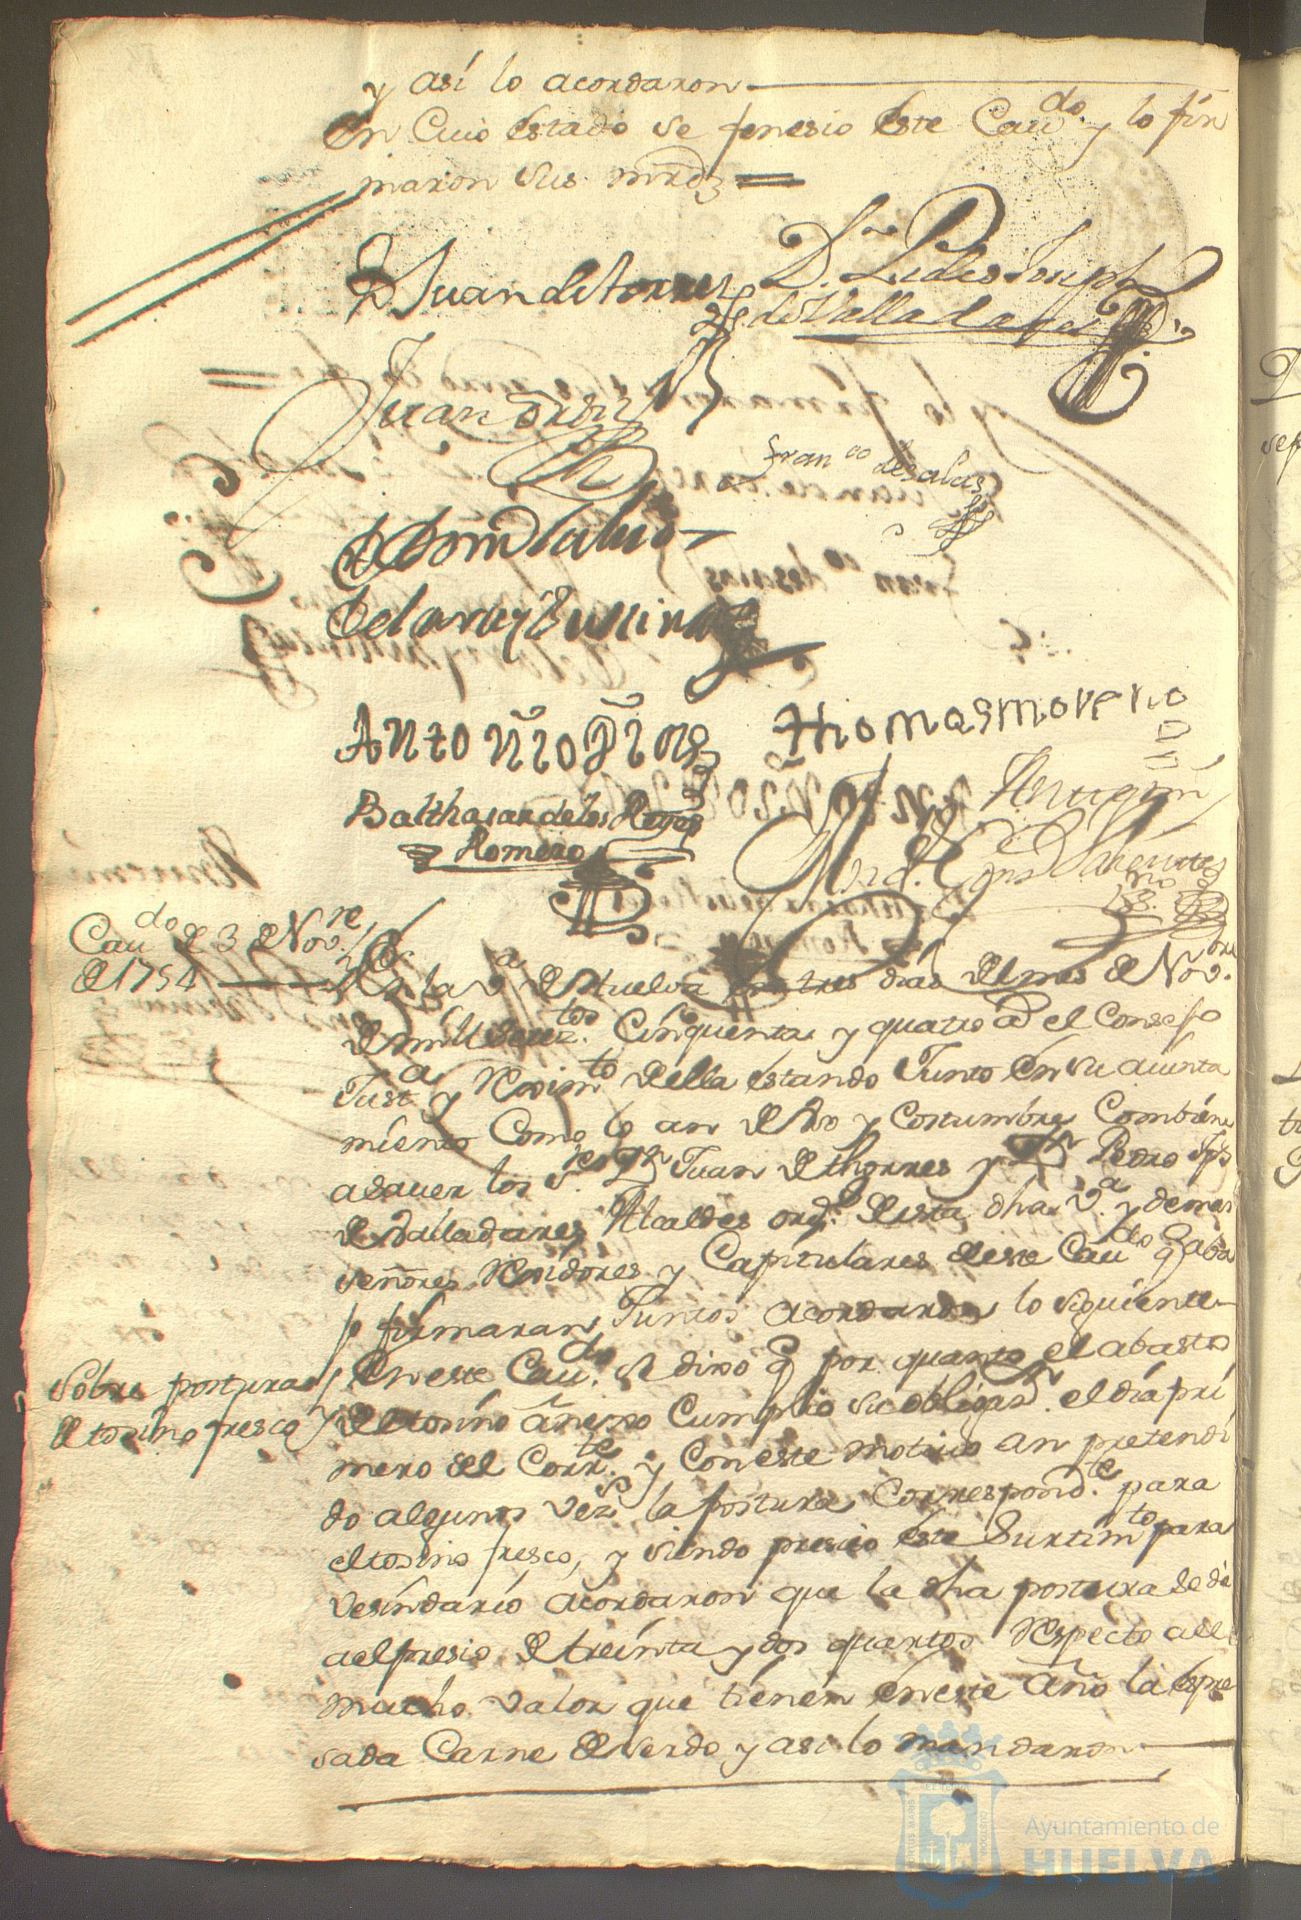 y así lo acordaron
en Cuio estado se fenesio este Cauᵈᵒ. y lo fir
maron sus mrdz
D Juan de torres
Dⁿ. Pedro Joseph
de Valladares
Juan
Franᶜᵒ de salas
Antoñio
Thomas moreno
Balthasar de los Reyes
Romero
Cauᵈᵒ de 3 de Novʳᵉ
de 1754
En la vᵃ de Huelva en tres dias del mes de Novʳᵉ.
de mill setezᵗᵒˢ. Cinquenta y quatro aˢ el Consejo
Justᵃ y Rexímᵗᵒ della estando Junto en su aiunta
miento Como lo an de Uso y Costumbre Combiene
a saver los Sʳᵉˢ Dⁿ Juan de thorres y Dⁿ Pedro Jph
de Valladares Alcaldes ordˢ. de esta dha vᵃ. y demas
señores Rexidores y Capitulares deste Cauᵈᵒ q aba
jo firmaran Juntos acordaron lo siguiente
Sobre postura
de tosino fresco
En este Cauᵈᵒ. se dixo q por quanto el abasto
del tosino añexo Cumplio su obligasⁿ. el día pri
mero del Corrᵗᵉ. y con este motivo an pretendi
do algunos vezˢ la postura Correspondᵗᵉ. para
el tosino fresco, y siendo presiso este Surtimᵗᵒ para
vesindario acordaron que la dha postura se dé
a el presio de treinta y dos quartos Respecto a el
mucho valor que tienen en este año la espre
sada Carne de Serdo y así lo mandaron
Ayuntamiento de
HUELVA